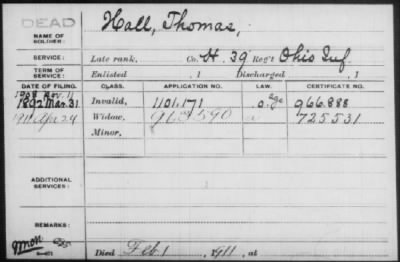 DEAD
Hall, Thomas,
NAME OF SOLDIER:
SERVICE: Late rank, Co. H. 39 Reg't Ohio Inf.
TERM OF SERVICE: Enlisted , 1 Discharged , 1
DATE OF FILING. CLASS. APPLICATION NO. LAW. CERTIFICATE NO.
1908 Nov. 11
1892 Mar. 31 Invalid, 1101.171 age 966.888
1911 Apr 24 Widow, 963590 725531
Minor,
ADDITIONAL SERVICES:
REMARKS:
Died Feb. 1 1911, at